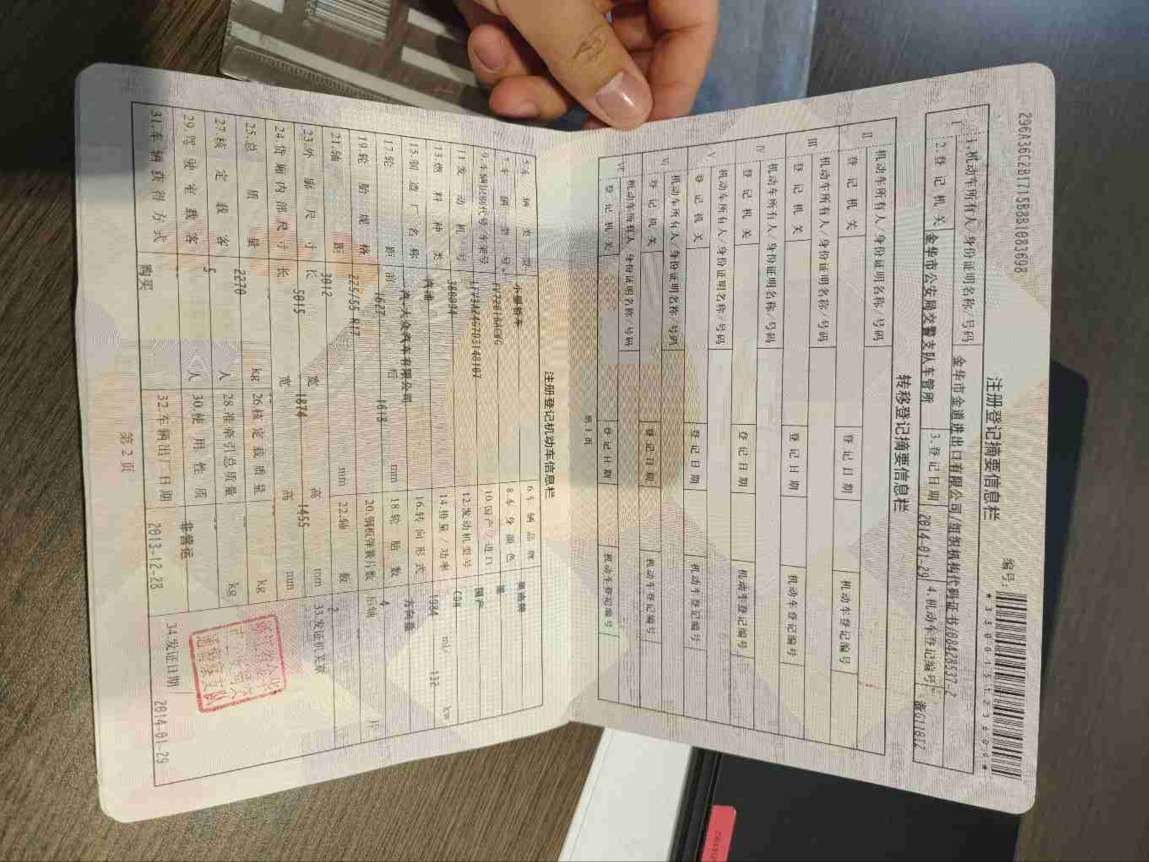 296A36C2B1715BBB1083698
注册登记摘要信息栏
编号:
Ⅰ
1.机动车所有人/身份证明名称/号码 金华市金道进出口有限公司/组织机构代码证书/08428537-2
2.登记机关 金华市公安局交警支队车管所 3.登记日期 2014-01-29 4.机动车登记编号
转移登记摘要信息栏
Ⅱ
机动车所有人/身份证明名称/号码
登记机关 登记日期 机动车登记编号
Ⅲ
机动车所有人/身份证明名称/号码
登记机关 登记日期 机动车登记编号
Ⅳ
机动车所有人/身份证明名称/号码
登记机关 登记日期 机动车登记编号
Ⅴ
机动车所有人/身份证明名称/号码
登记机关 登记日期 机动车登记编号
Ⅵ
机动车所有人/身份证明名称/号码
登记机关 登记日期 机动车登记编号
Ⅶ
机动车所有人/身份证明名称/号码
登记机关 登记日期 机动车登记编号
第1页
注册登记机动车信息栏
5.车辆类型 小型轿车 6.车辆品牌
7.车辆型号 8.车身颜色 黑
9.车辆识别代号/车架号 10.国产/进口 国产
11.发动机号 12.发动机型号
13.燃料种类 汽油 14.排量/功率 1984 ml/ 132 kw
15.制造厂名称 一汽大众汽车有限公司 16.转向形式 方向盘
17.轮距 前 1627 后 1618 mm 18.轮胎数 4
19.轮胎规格 225/55 R17 20.钢板弹簧片数 后轴 片
21.轴距 3012 mm 22.轴数 2
23.外廓尺寸 长 5015 宽 1874 高 1455 mm 33.发证机关章
24.货厢内部尺寸 长 宽 高 mm
25.总质量 2270 kg 26.核定载质量 kg
27.核定载客 5 人 28.准牵引总质量 kg
29.驾驶室载客 人 30.使用性质 非营运
31.车辆获得方式 购买 32.车辆出厂日期 2013-12-28 34.发证日期 2014-01-29
第2页